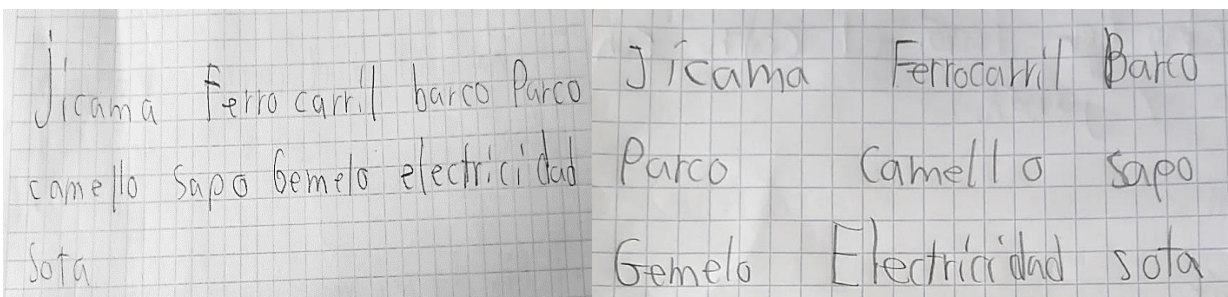 Jicama Ferrocarril barco Parco
camello sapo Gemelo electricidad
sota
Jícama Ferrocarril Barco
Parco Camello sapo
Gemelo Electricidad sota